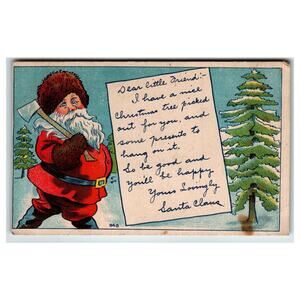 Dear little Friend:-
I have a nice
Christmas tree picked
out for you, and
some presents to
hang on it.
So be good and
you'll be happy
Yours lovingly
Santa Claus